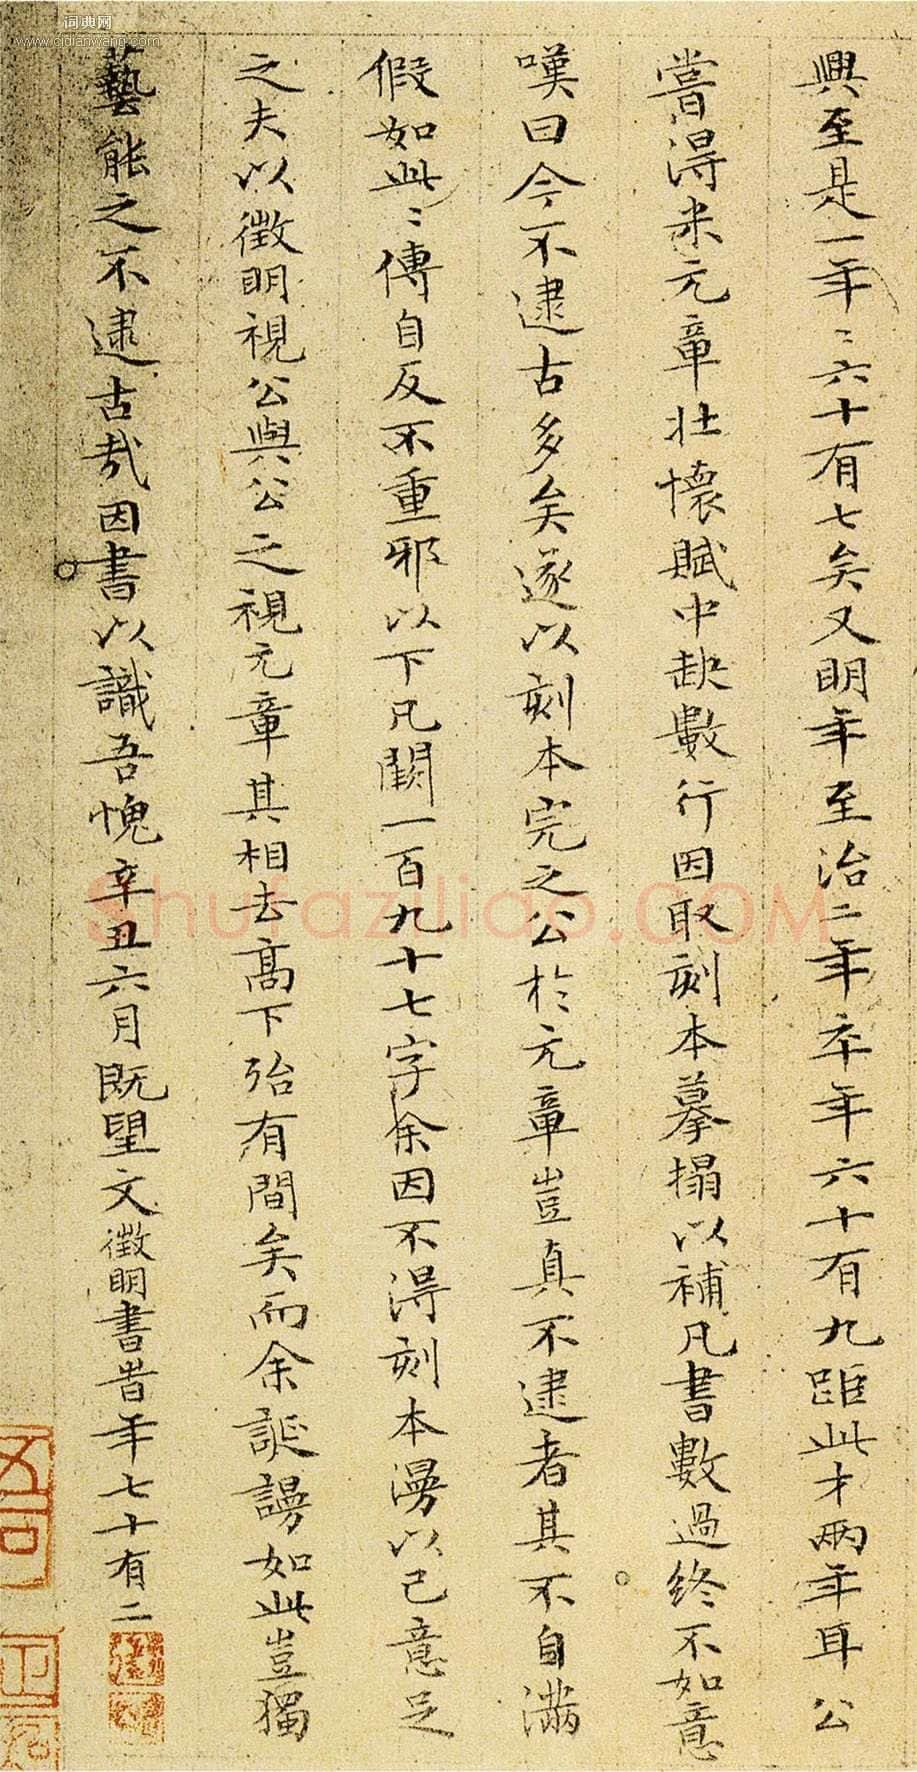 興至是一年〻六十有七矣又明年至治二年卒年六十有九距此才兩年耳公
嘗得米元章壯懷賦中缺數行因取刻本摹搨以補凡書數過終不如意
嘆曰今不逮古多矣遂以刻本完之公於元章豈真不逮者其不自滿
假如此〻傳自反不重邪以下凡闕一百九十七字余因不得刻本漫以己意足
之夫以徵明視公與公之視元章其相去高下殆有間矣而余誕謾如此豈獨
藝能之不逮古哉因書以識吾愧辛丑六月既望文徵明書昔年七十有二
词典网
www.cidianwang.com
Shufaziliao.COM